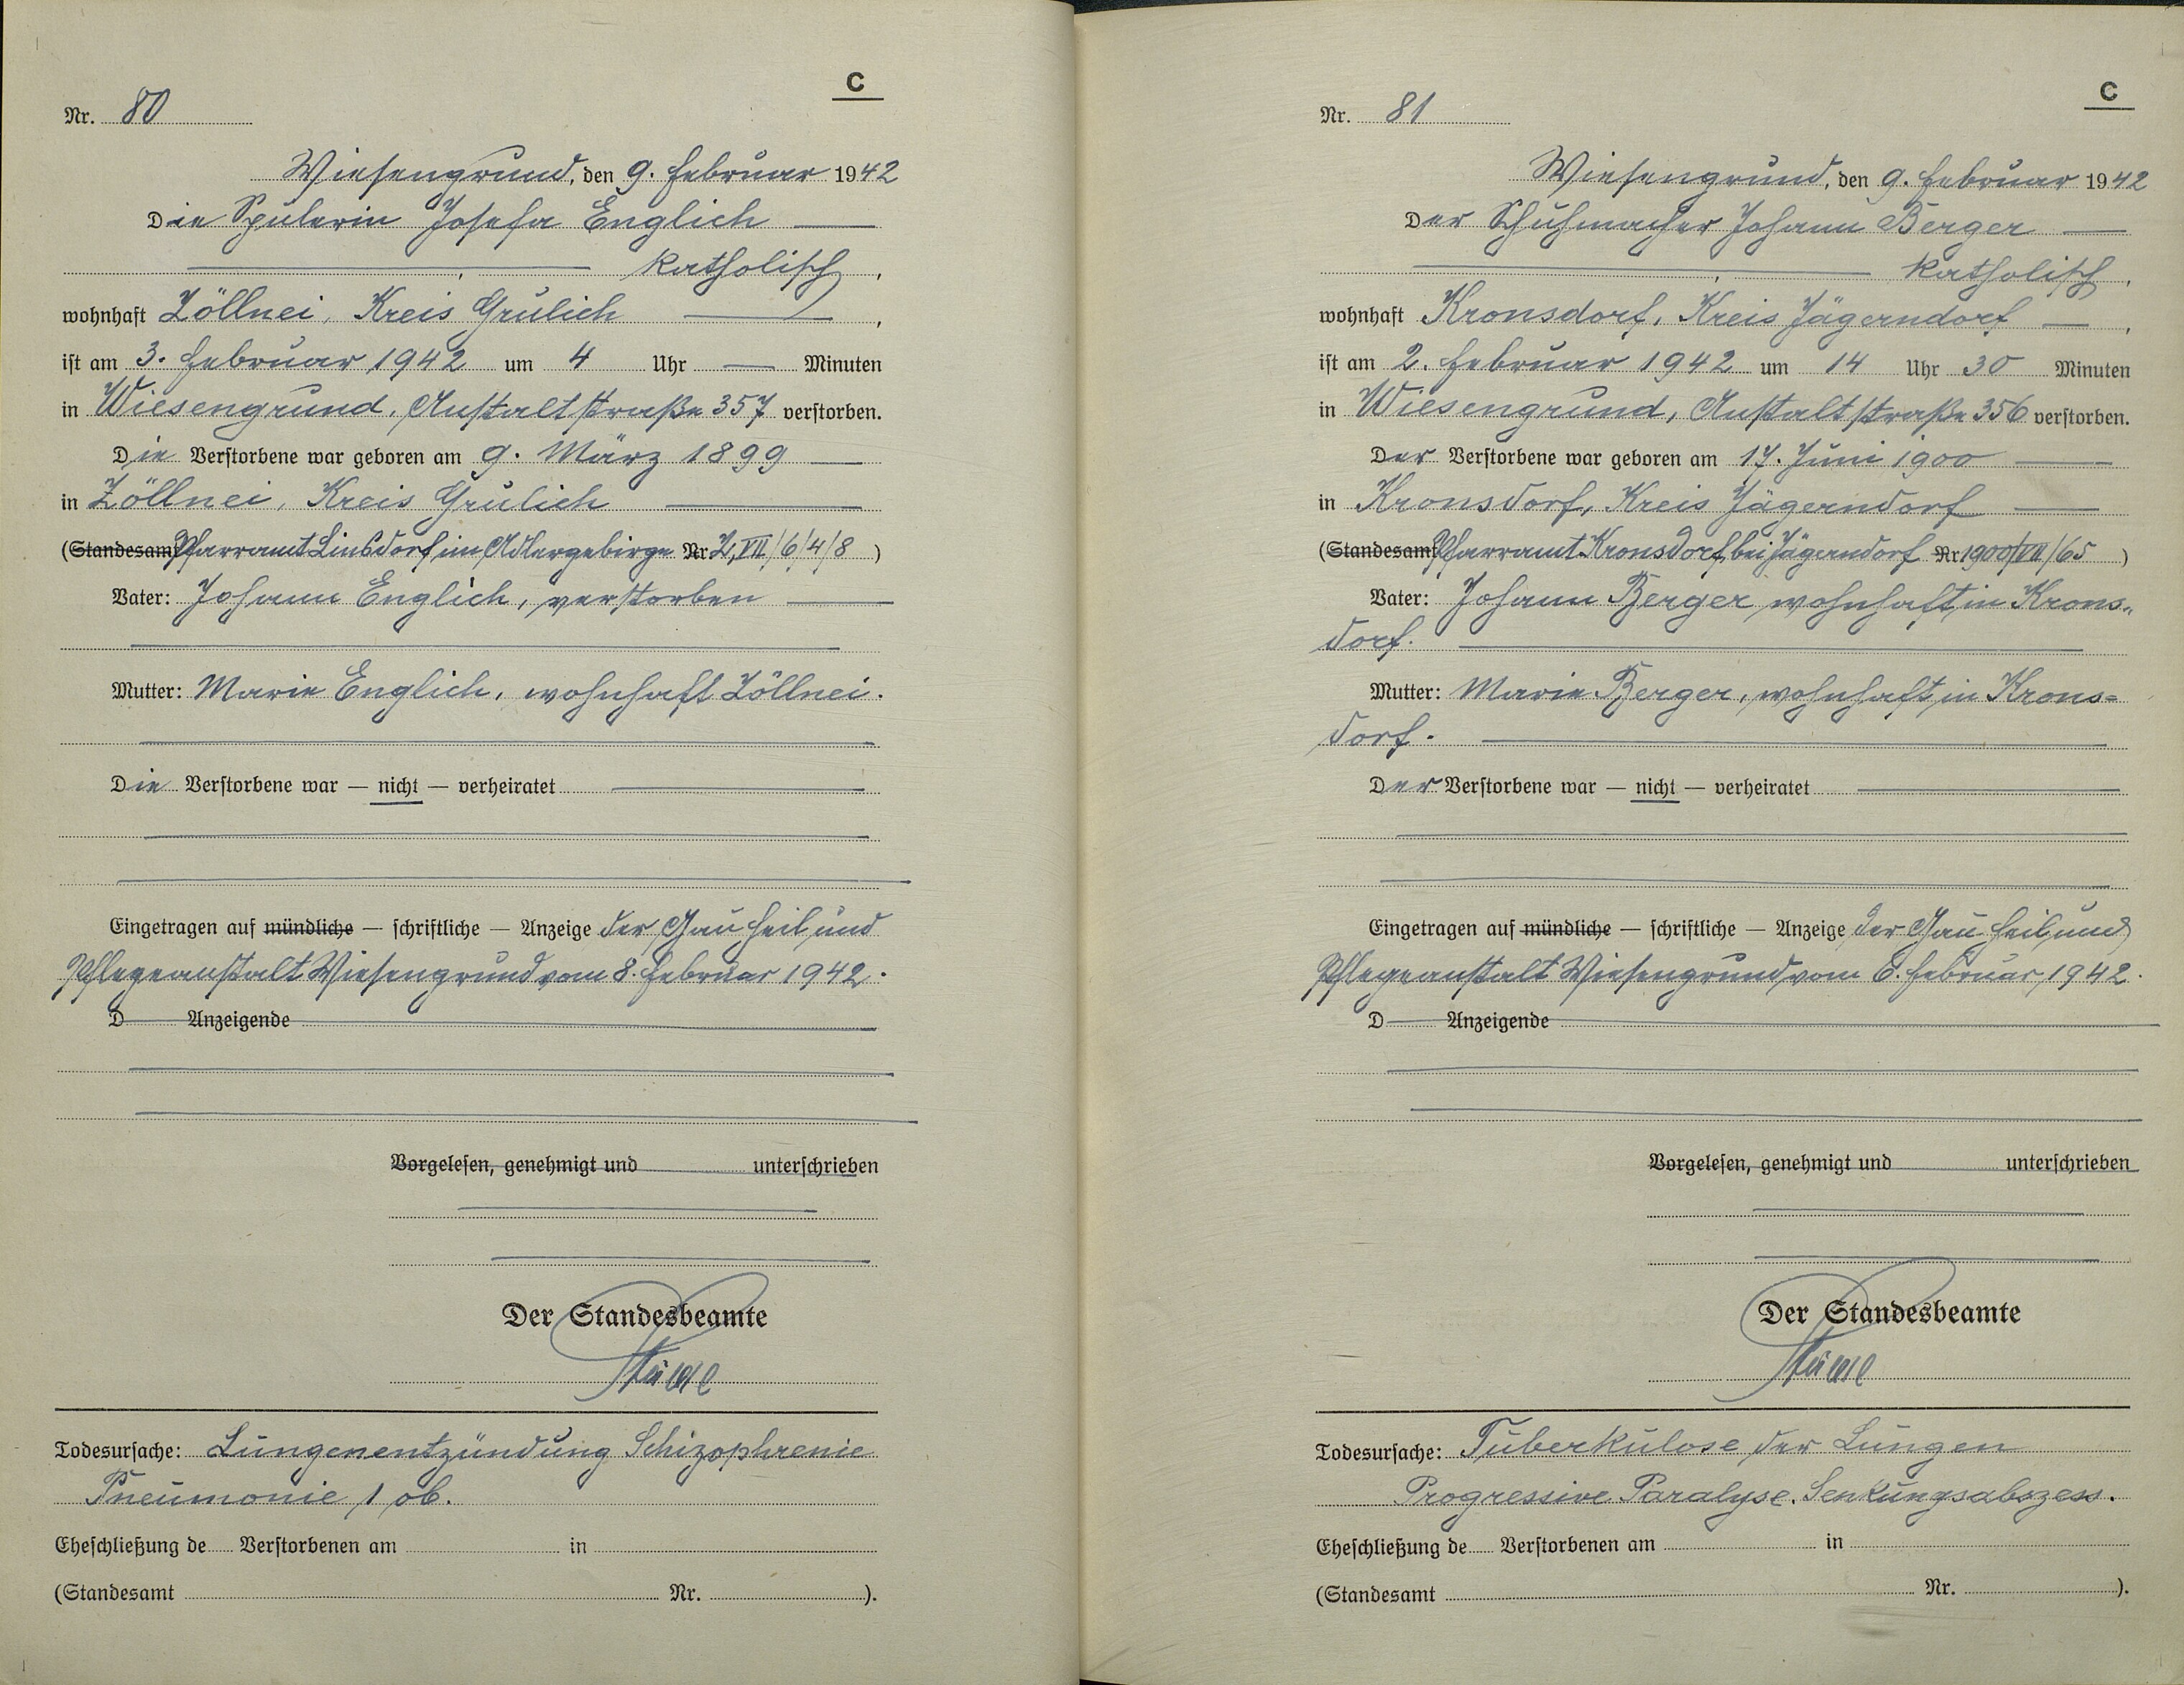 C
Nr. 80
Wiesengrund, den 9. Februar 1942
Die Spulerin Josefa Englich
katholisch,
wohnhaft Zöllnei, Kreis Grulich,
ist am 3. Februar 1942 um 4 Uhr — Minuten
in Wiesengrund, Anstaltstraße 357 verstorben.
Die Verstorbene war geboren am 9. März 1899
in Zöllnei, Kreis Grulich
(Standesamt Pfarramt Linsdorf im Adlergebirge Nr. Z, VII/6/4/8)
Vater: Johann Englich, verstorben
Mutter: Marie Englich, wohnhaft Zöllnei.
Die Verstorbene war — nicht — verheiratet
Eingetragen auf mündliche — schriftliche — Anzeige der Gau Heil und
Pflegeanstalt Wiesengrund vom 8. Februar 1942.
D Anzeigende
Vorgelesen, genehmigt und unterschrieben
Der Standesbeamte
Todesursache: Lungenentzündung Schizophrenie
Pneumonie lob.
Eheschließung de Verstorbenen am in
(Standesamt Nr. ).
C
Nr. 81
Wiesengrund, den 9. Februar 1942
Der Schuhmacher Johann Berger
katholisch,
wohnhaft Kronsdorf, Kreis Jägerndorf,
ist am 2. Februar 1942 um 14 Uhr 30 Minuten
in Wiesengrund, Anstaltstraße 356 verstorben.
Der Verstorbene war geboren am 17. Juni 1900
in Kronsdorf, Kreis Jägerndorf
(Standesamt Pfarramt Kronsdorf bei Jägerndorf Nr. 1900/VII/65)
Vater: Johann Berger wohnhaft in Krons-
dorf.
Mutter: Marie Berger, wohnhaft in Krons-
dorf.
Der Verstorbene war — nicht — verheiratet
Eingetragen auf mündliche — schriftliche — Anzeige der Gau Heil und
Pflegeanstalt Wiesengrund vom 6. Februar 1942.
D Anzeigende
Vorgelesen, genehmigt und unterschrieben
Der Standesbeamte
Todesursache: Tuberkulose der Lungen
Progressive Paralyse. Senkungsabszess.
Eheschließung de Verstorbenen am in
(Standesamt Nr. ).